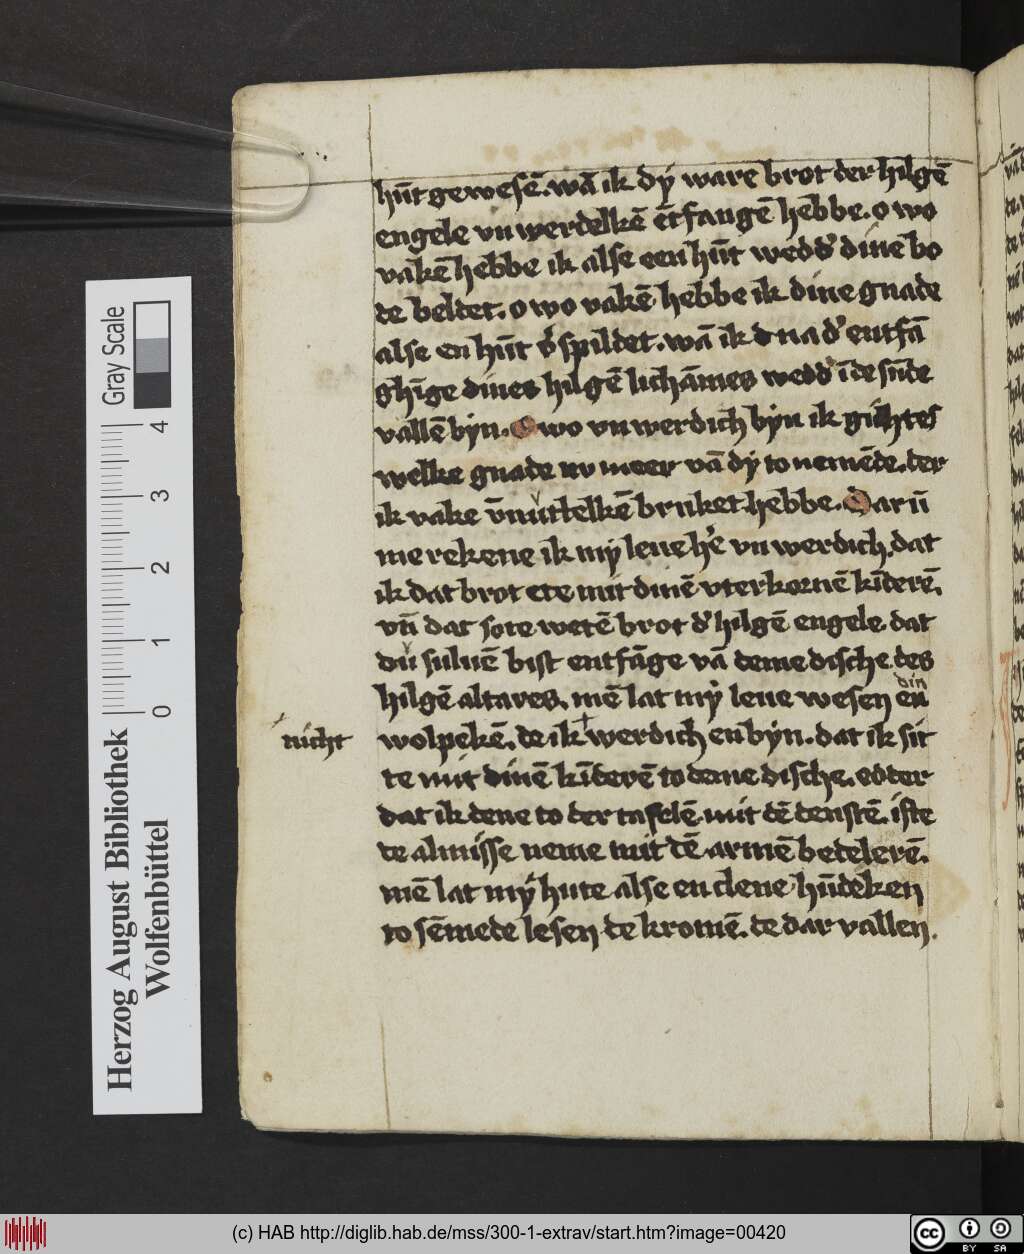 hūt gewesē. wā ik dÿ ware brot der hilgē
engele vnwerdelkē ētfangē hebbe. o wo
vakē hebbe ik alse een hūt wedd' dine bo
de beldet. o wo vakē hebbe ik dine gnade
alse en hūt v'spildet. wā ik d na d' entfā
ghīge dines hilgē lichāmes wedd' ī de sūde
vallē byn. O wo vnwerdich byn ik gichtes
welke gnade nv meer vā dÿ to nemēde. der
ik vake v̄nutlelkē bruket hebbe. Dar ū
me rekene ik mÿ leue he' vnwerdich. dat
ik dat brot ete mit dinē vterkornē kīderē.
vn̄ dat sote wetē brot d' hilgē engele. dat
du suluē bist entfāge vā deme dische. des
hilgē altares. mē lat mÿ leue wesen en
din
nicht
wolpekē. de ik werdich en byn. dat ik sit
te mit dinē kīderē to deme dische. edder
dat ik dene to der tafelē mit dē denstē. iste
de almisse neme mit dē armē bedelerē.
mē lat mÿ hute alse en clene hūdeken
to sēmede lesen de kromē. de dar vallen.
Gray Scale
0 1 2 3 4
Herzog August Bibliothek
Wolfenbüttel
(c) HAB http://diglib.hab.de/mss/300-1-extrav/start.htm?image=00420
cc BY SA